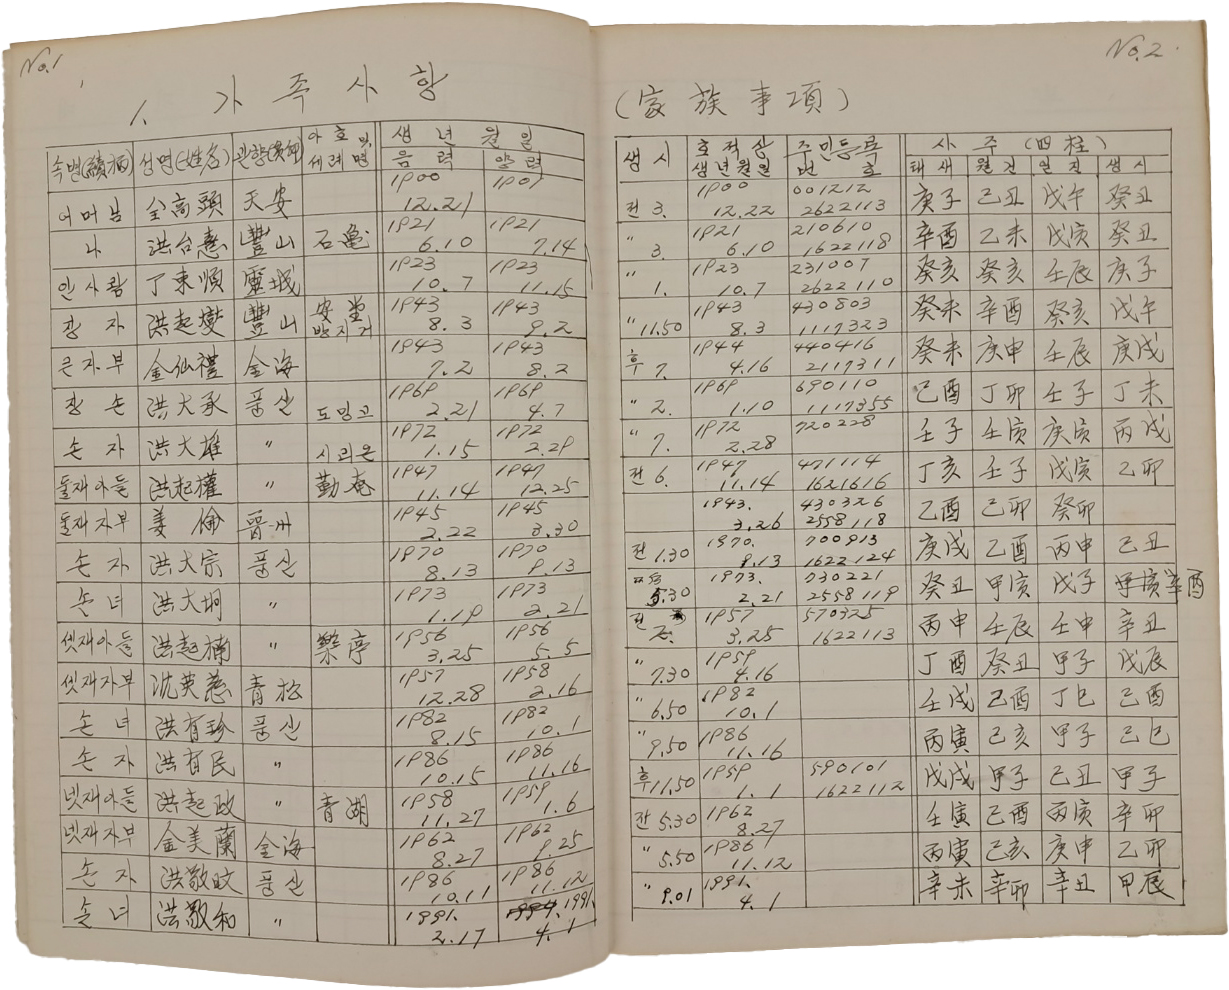 No.1
1. 가족사항
속별(續柄) 성명(姓名) 관향(貫鄕) 아호 및 세례명 생년월일
음력 양력
어머님 全高頭 天安 1900 12.21 1901
나 洪台憙 豐山 石龜 1921 6.10 1921 7.14
안사람 丁東順 靈城 1923 10.7 1923 11.15
장자 洪起燮 豐山 安堂 방지거 1943 8.3 1943 9.2
큰자부 金仙禮 金海 1943 7.2 1943 8.2
장손 洪大承 풍산 도밍고 1969 2.21 1969 4.7
손자 洪大雄 〃 시리온 1972 1.15 1972 2.29
둘재아들 洪起權 〃 勤庵 1947 11.14 1947 12.25
둘재자부 姜倫 晋州 1945 2.22 1945 3.30
손자 洪大宗 풍산 1970 8.13 1970 9.13
손녀 洪大坰 〃 1973 1.19 1973 2.21
셋재아들 洪起楠 〃 樂亭 1956 3.25 1956 5.5
셋재자부 沈英慈 青松 1957 12.28 1958 2.16
손녀 洪有珍 풍산 1982 8.15 1982 10.1
손자 洪有民 〃 1986 10.15 1986 11.16
넷재아들 洪起政 〃 青湖 1958 11.27 1959 1.6
넷재자부 金美蘭 金海 1962 8.27 1962 9.25
손자 洪敬旼 풍산 1986 10.11 1986 11.12
손녀 洪敬和 〃 1991. 2.17 1991. 4.1
No.2
(家族事項)
생시 호적상 생년월일 주민등록번호 사주(四柱)
태세 월건 일진 생시
전 3. 1900 12.22 001212 2622113 庚子 己丑 戊午 癸丑
〃 3. 1921 6.10 210610 1622118 辛酉 乙未 戊寅 癸丑
〃 1. 1923 10.7 231007 2622110 癸亥 癸亥 壬辰 庚子
〃 11.50 1943 8.3 430803 1117323 癸未 辛酉 癸亥 戊午
후 7. 1944 4.16 440416 2117311 癸未 庚申 壬辰 庚戌
〃 2. 1969 1.10 690110 1117355 己酉 丁卯 壬子 丁未
〃 7. 1972 2.28 720228 壬子 壬寅 庚寅 丙戌
전 6. 1947 11.14 471114 1621616 丁亥 壬子 戊寅 乙卯
1943. 3.26 430326 2558118 乙酉 己卯 癸卯
전 1.30 1970. 9.13 700913 1622124 庚戌 乙酉 丙申 己丑
5.30 1973. 2.21 730221 2558119 癸丑 甲寅 戊子 甲寅 辛酉
전 2. 1957 3.25 570325 1622113 丙申 壬辰 壬申 辛丑
〃 7.30 1959 4.16 丁酉 癸丑 甲子 戊辰
〃 6.50 1982 10.1 壬戌 己酉 丁巳 己酉
〃 9.50 1986 11.16 丙寅 己亥 甲子 己巳
후 11.50 1959 1.1 590101 1622112 戊戌 甲子 己丑 甲子
전 5.30 1962 8.27 壬寅 己酉 丙寅 辛卯
〃 5.50 1986 11.12 丙寅 己亥 庚申 乙卯
〃 9.01 1991. 4.1 辛未 辛卯 辛丑 甲辰